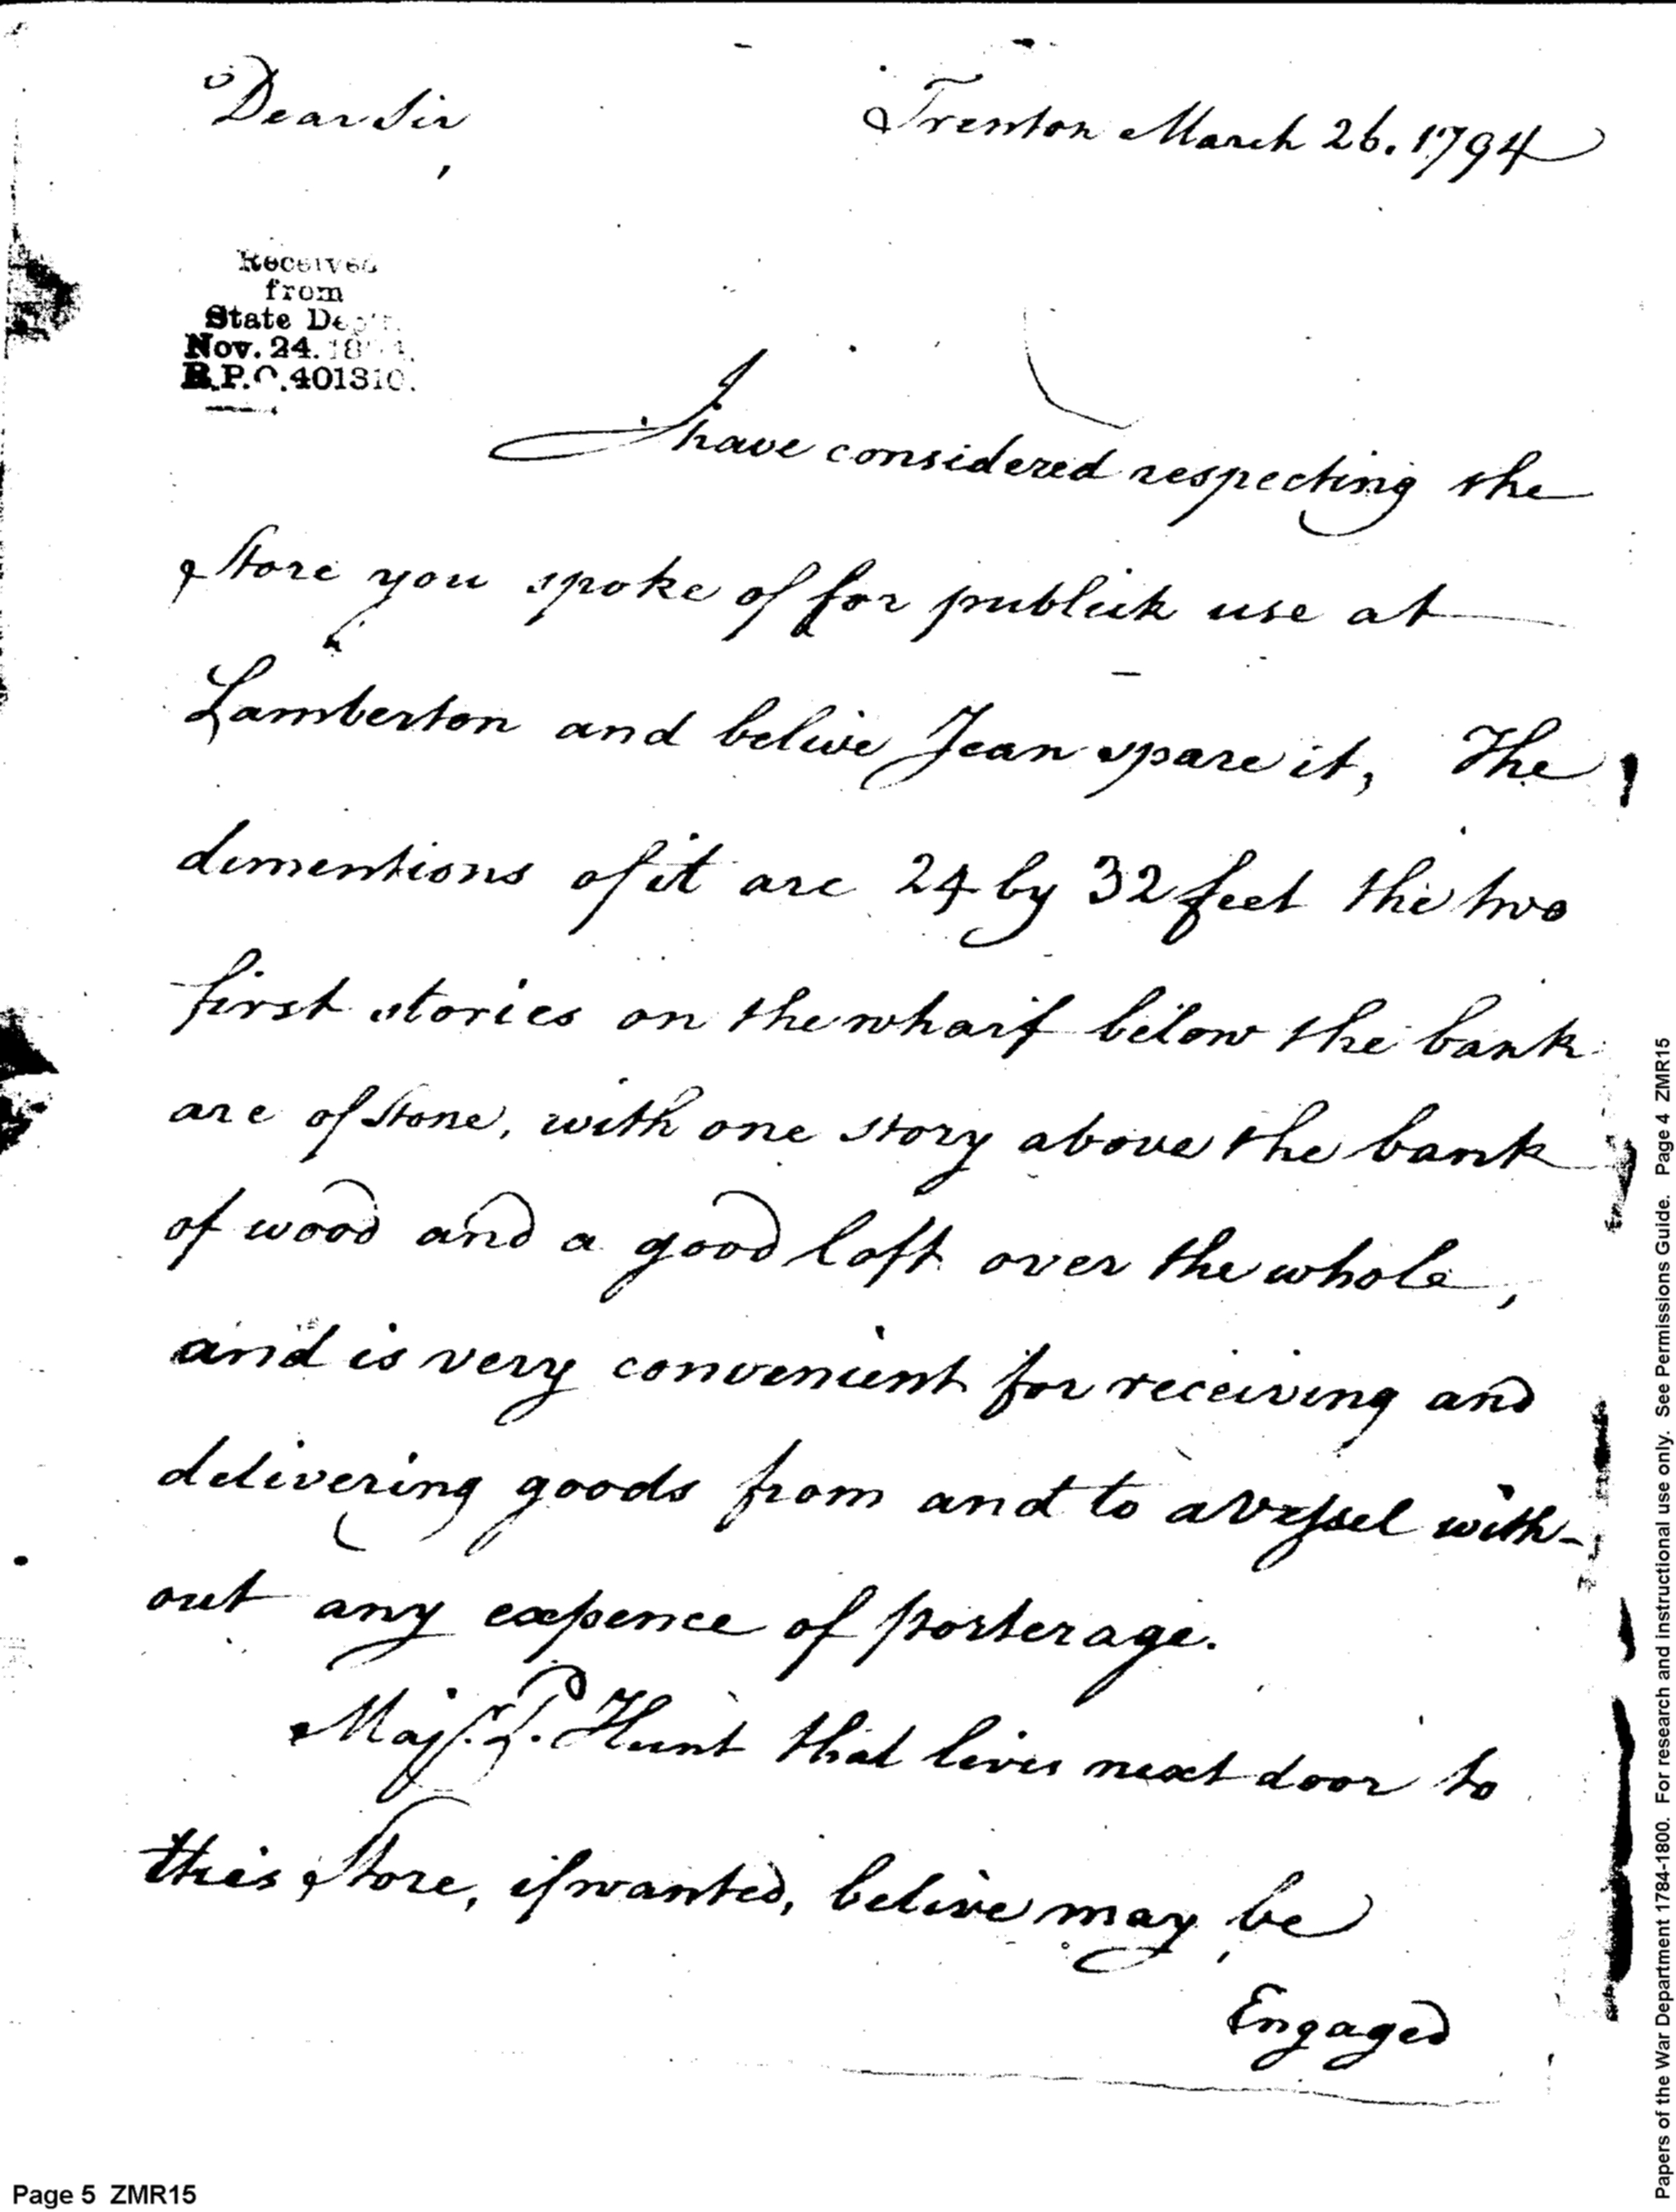 Dear Sir,
Trenton March 26. 1794
Received
from
State Dep't.
Nov. 24. 18
R.P.O. 401310.
I have considered respecting the
Store you spoke of for publick use at
Lamberton and belive I can spare it, The
dimentions of it are 24 by 32 feet the two
first stories on the wharf below the bank
are of Stone, with one story above the bank
of wood and a good loft over the whole,
and is very convenient for receiving and
delivering goods from and to a vessel with-
out any expence of porterage.
Majr. P. Hunt that lives next door to
this Store, if wanted, belive may be
Engaged
Page 5 ZMR15
Papers of the War Department 1784-1800. For research and instructional use only. See Permissions Guide. Page 4 ZMR15